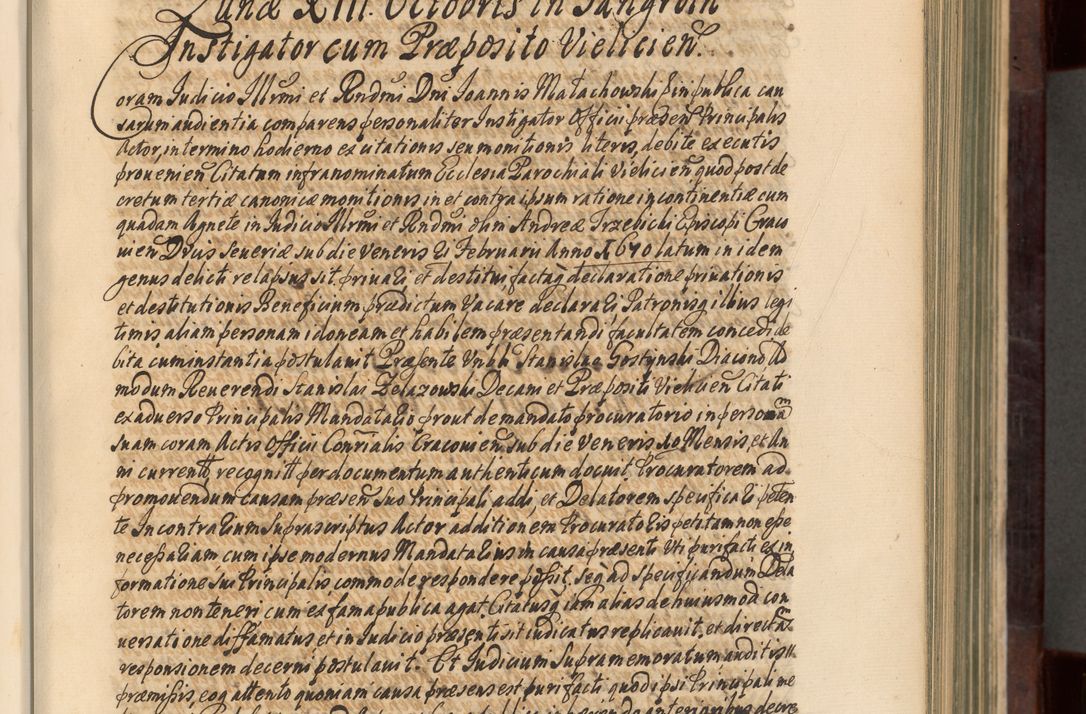 Lunæ XIII. Octobris in Jungrovin
Instigator cum Præposito Vielicień.
Coram Judicio Illrmi et Rndmi Dni Joannis Małachowski & in publica cau
sarum audientia comparens personaliter Instigator Officii præseń Principalis
Actor, in termino hodierno ex citationis seu monitionis literis, debite executis
provenień Citatum infranominatum Ecclesia Parochiali Vielicień quod post de
cretum tertiæ canonicæ monitionis in et contra ipsum ratione incontinentiæ cum
quadam Agnete in Judicio Illrmi et Rndmi olim Andreæ Trzebicki Episcopi Craco
vień Ducis Severiæ sub die Veneris 21 Februarii Anno 1670 latum in idem
genus delicti relapsus sit, privari et destitui factaq declaratione privationis
et destitutionis Beneficium prædictum Vacare declarari Patronisq illius legi
timis aliam personam idoneam et habilem præsentandi facultatem concedi de
bita cum instantia postulavit Præsente Vnbli Stanislao Gostynski Diacono Ad
modum Reverendi Stanislai Zelazowski Decani et Præpositi Vielicień Citati
ex adverso Principalis Mandatario prout de mandato procuratorio in personam
suam coram Actis Officii Conrialis Cracovień sub die Veneris 10 Mensis, et An
ni currentis recogniti per documentum authenticum docuit. Procuratorem ad
promovendum causam præseń suo Principali addi, et Delatorem specificari peten
te In contrarium Suprascriptus Actor additionem Procuratoris petitam non esse
necessariam cum ipse modernus Mandatarius in causa præsenti Vti purifacti ex in
formatione sui Principalis commode respondere possit, seq ad specificandum Dela
torem non teneri cum ex fama publica agat. Citatusq iam alias de huiusmodi con
versatione diffamatus et in Judicio præsenti sit iudicatus replicavit, et directam
responsionem decerni postulavit. Et Judicium Supramemoratum auditis
præmissis, eoq attento quoniam causa præsens est purifacti quod ipsi Principali me